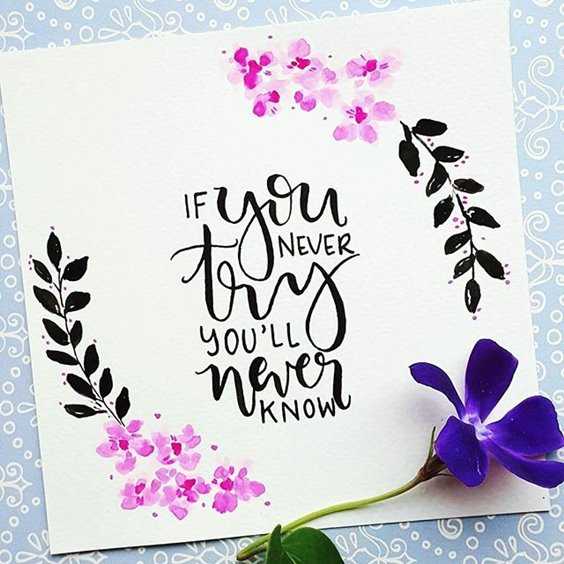 IF you
NEVER
try
YOU'LL
never
KNOW